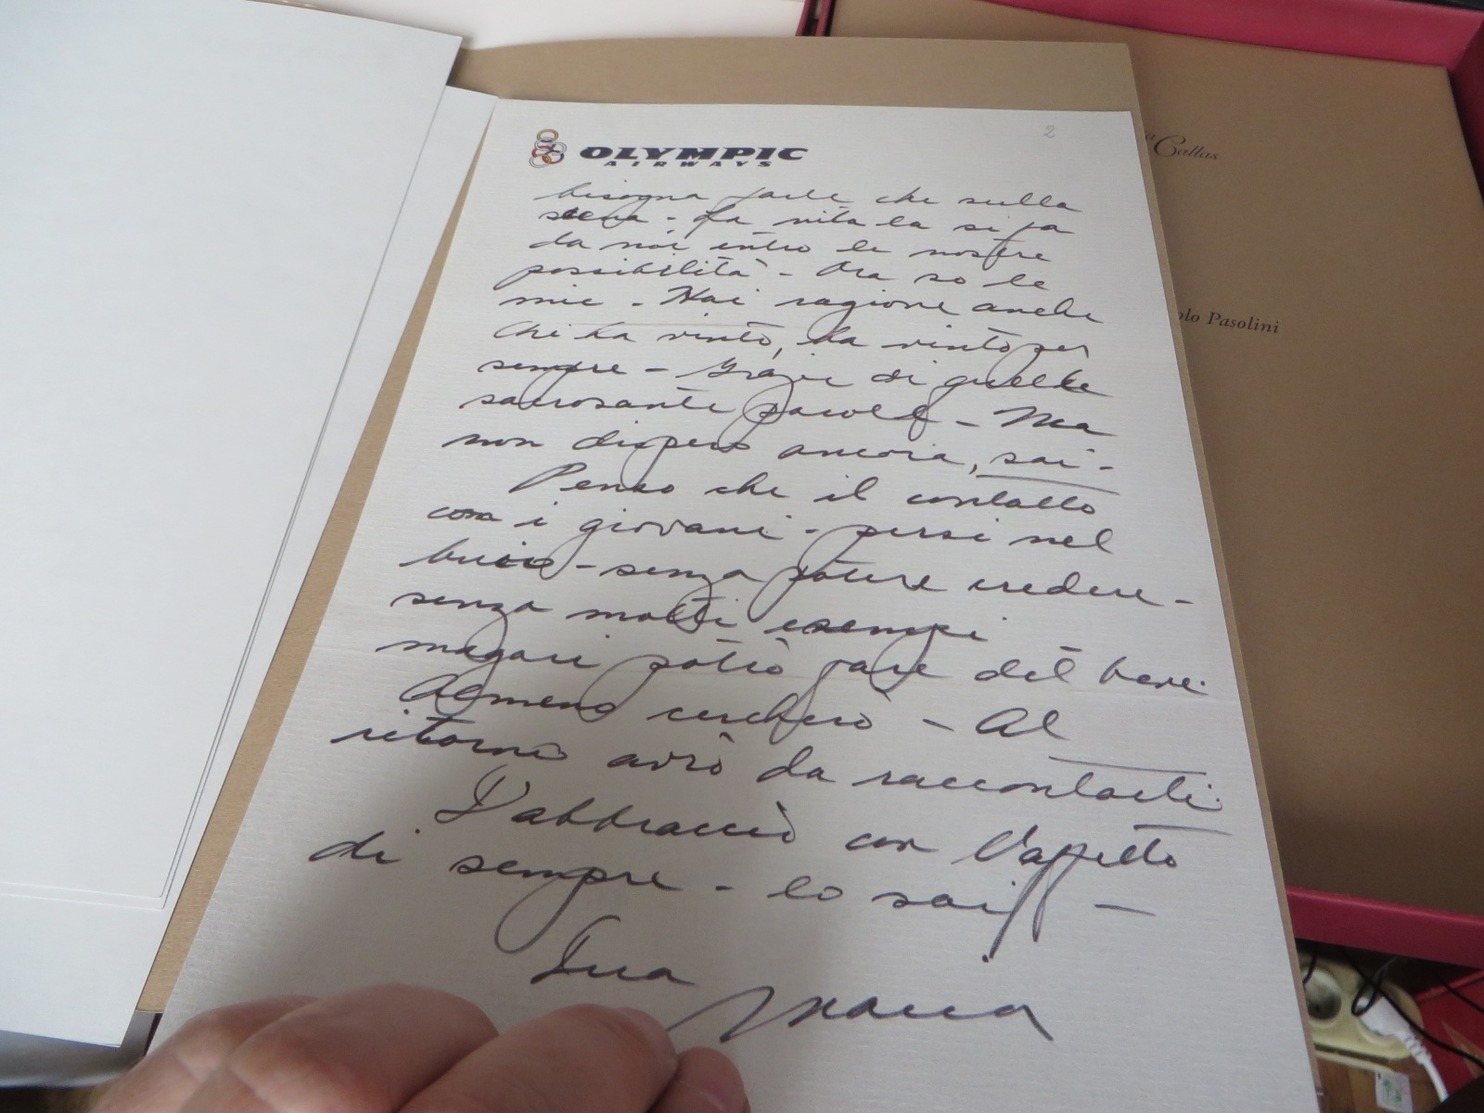 2
OLYMPIC
AIRWAYS
bisogna farle che sulla
scena - La vita la si fa
da noi entro le nostre
possibilità - Ora so le
mie - Hai ragione anche
chi ha vinto, ha vinto per
sempre - Grazie di quelle
sacrosante parole - Ma
non dispero ancora, sai -
Penso che il contatto
con i giovani - persi nel
buio - senza potere credere -
senza molti esempi
magari potrò fare del bene
Almeno cercherò - Al
ritorno avrò da raccontarti
T'abbraccio con l'affetto
di sempre - lo sai -
Tua
Maria
a Callas
olo Pasolini